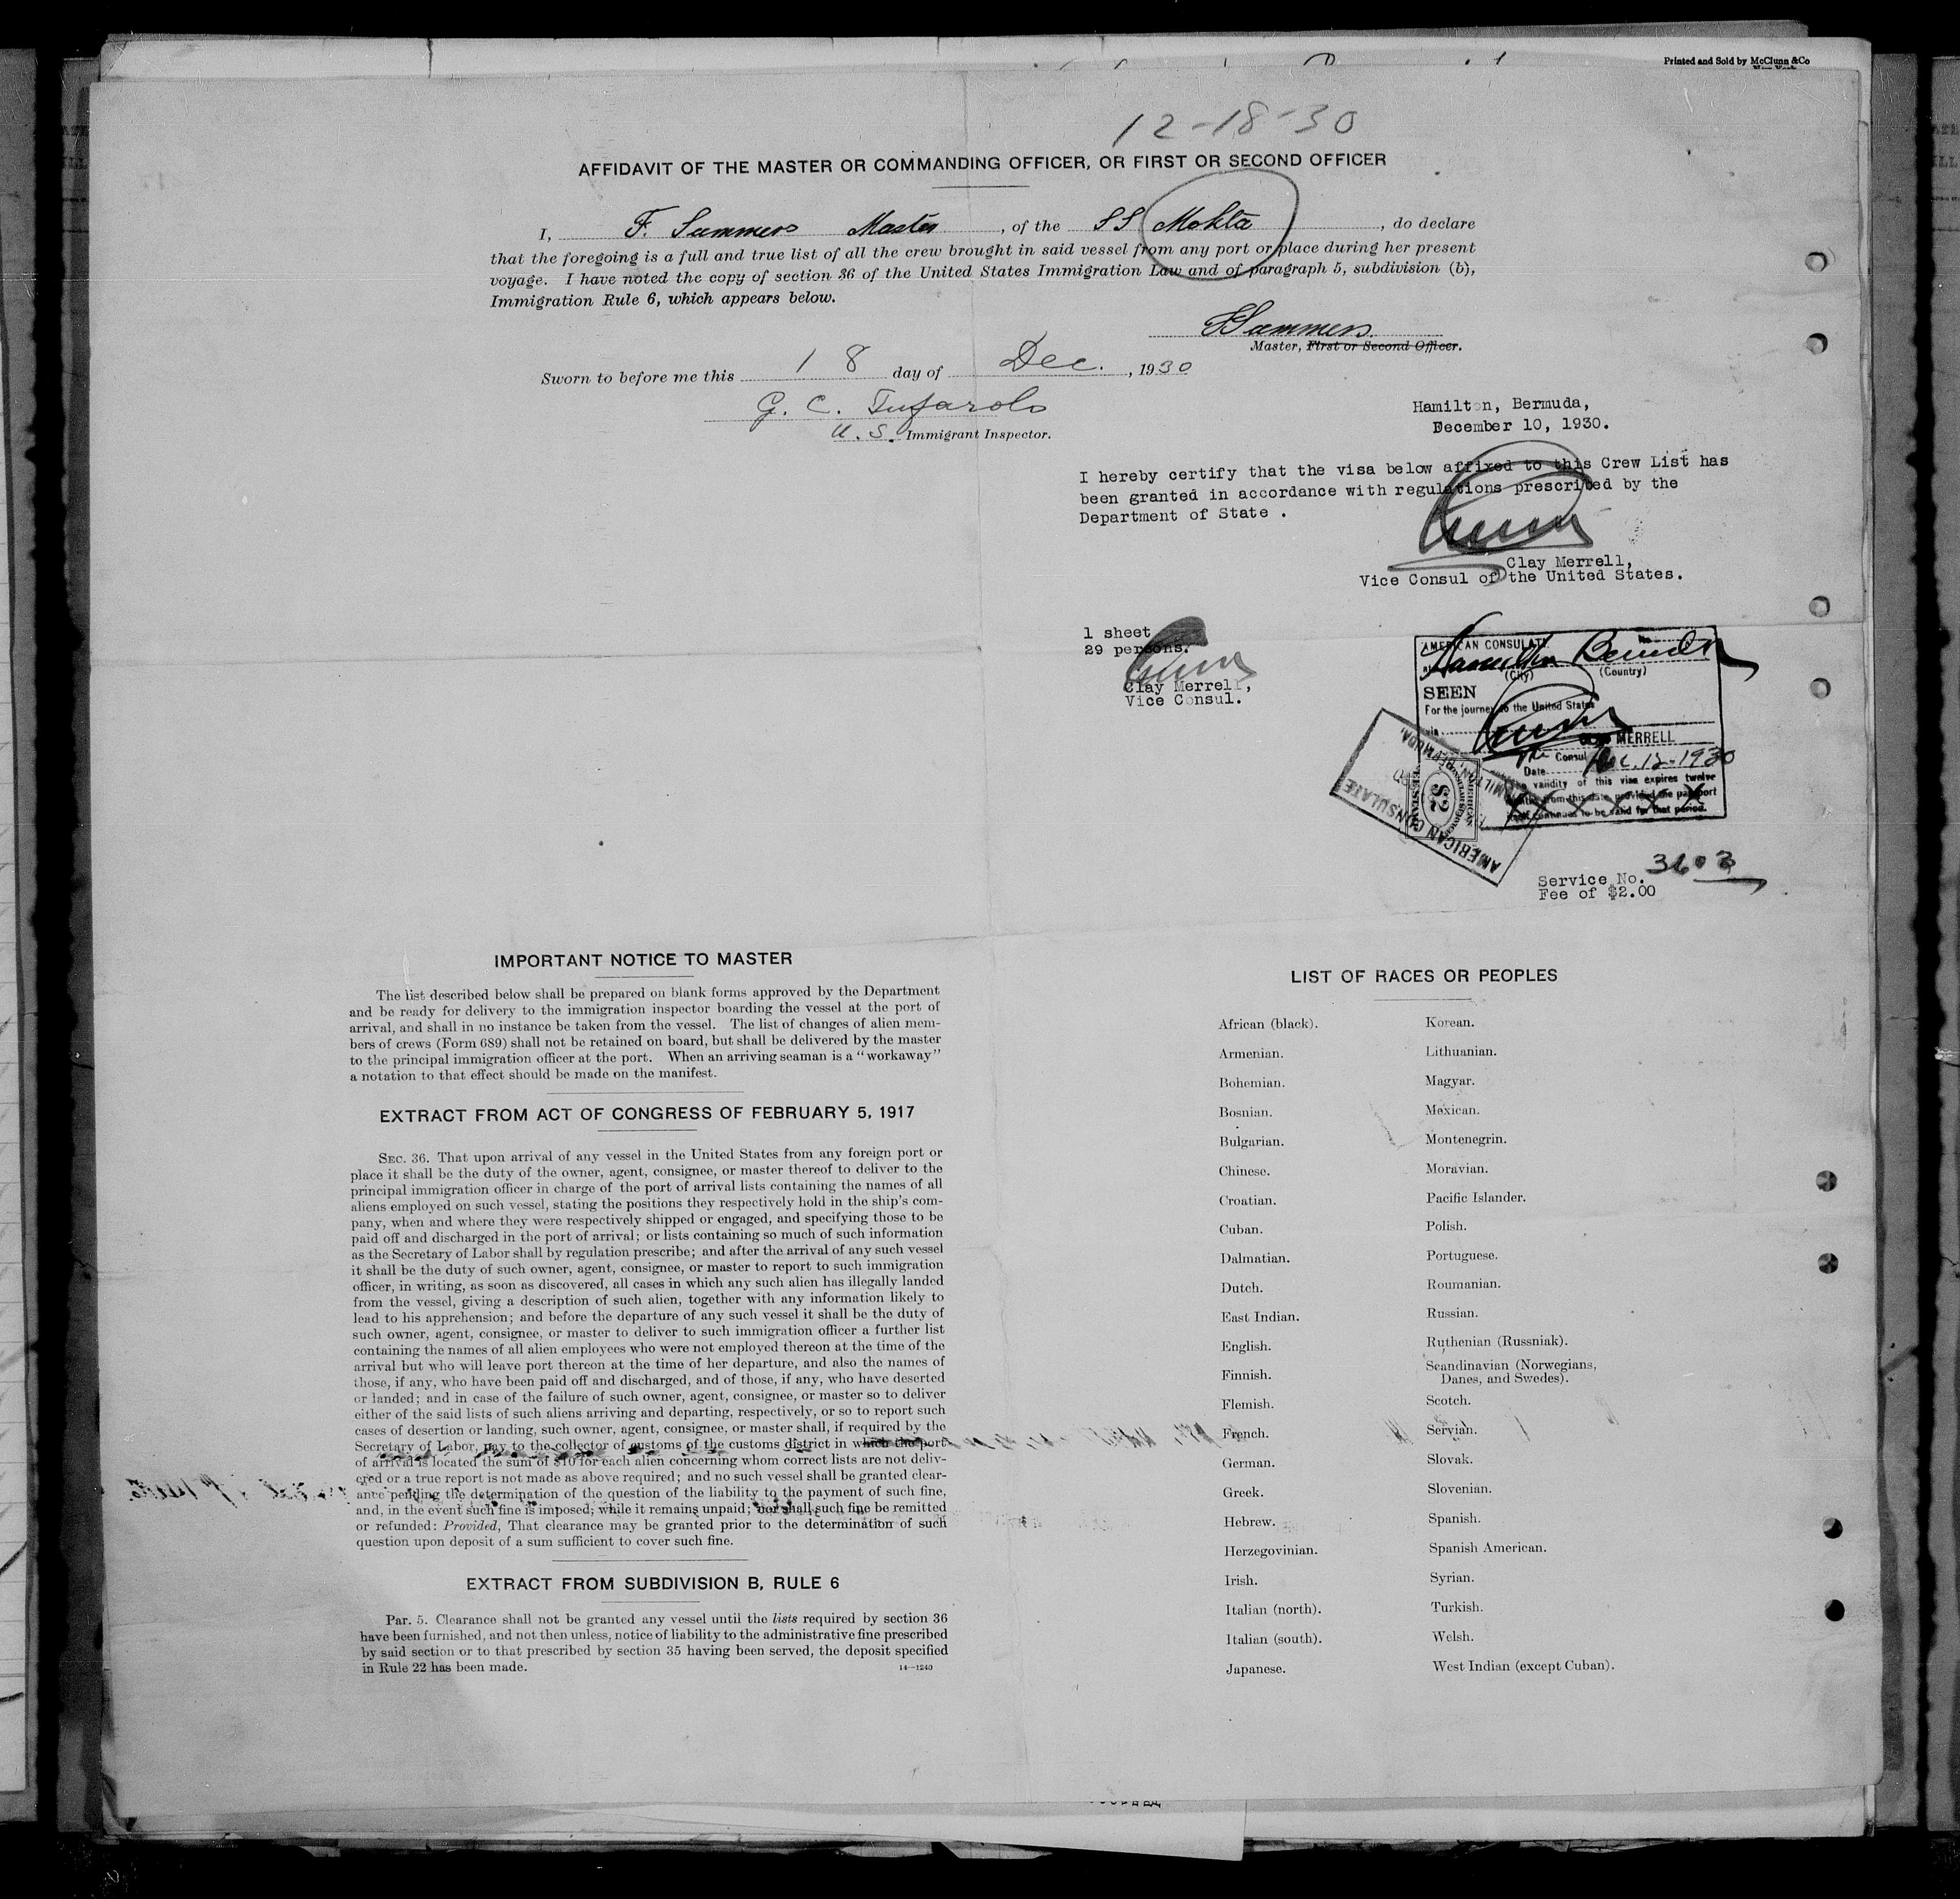 Printed and Sold by McClunn & Co
New York
12-18-30
AFFIDAVIT OF THE MASTER OR COMMANDING OFFICER, OR FIRST OR SECOND OFFICER
I, F. Summers Master, of the SS Mokta, do declare
that the foregoing is a full and true list of all the crew brought in said vessel from any port or place during her present
voyage. I have noted the copy of section 36 of the United States Immigration Law and of paragraph 5, subdivision (b),
Immigration Rule 6, which appears below.
FSummers
Master, First or Second Officer.
Sworn to before me this 18 day of Dec., 1930
G. C. Tufarolo
U. S. Immigrant Inspector.
Hamilton, Bermuda,
December 10, 1930.
I hereby certify that the visa below affixed to this Crew List has
been granted in accordance with regulations prescribed by the
Department of State .
Clay Merrell,
Vice Consul of the United States.
1 sheet
29 persons.
Clay Merrell,
Vice Consul.
AMERICAN CONSULATE
No.
at Hamilton Bermuda
(City) (Country)
SEEN
For the journey to the United States
via
MERRELL
Vice Consul
Date Dec. 12-1930
validity of this visa expires twelve
months from this date provided the passport
continues to be valid for that period.
AMERICAN CONSULATE
HAMILTON, BERMUDA.
AMERICAN
$2
Service No. 3603
Fee of $2.00
IMPORTANT NOTICE TO MASTER
The list described below shall be prepared on blank forms approved by the Department
and be ready for delivery to the immigration inspector boarding the vessel at the port of
arrival, and shall in no instance be taken from the vessel. The list of changes of alien mem-
bers of crews (Form 689) shall not be retained on board, but shall be delivered by the master
to the principal immigration officer at the port. When an arriving seaman is a "workaway"
a notation to that effect should be made on the manifest.
EXTRACT FROM ACT OF CONGRESS OF FEBRUARY 5, 1917
SEC. 36. That upon arrival of any vessel in the United States from any foreign port or
place it shall be the duty of the owner, agent, consignee, or master thereof to deliver to the
principal immigration officer in charge of the port of arrival lists containing the names of all
aliens employed on such vessel, stating the positions they respectively hold in the ship's com-
pany, when and where they were respectively shipped or engaged, and specifying those to be
paid off and discharged in the port of arrival; or lists containing so much of such information
as the Secretary of Labor shall by regulation prescribe; and after the arrival of any such vessel
it shall be the duty of such owner, agent, consignee, or master to report to such immigration
officer, in writing, as soon as discovered, all cases in which any such alien has illegally landed
from the vessel, giving a description of such alien, together with any information likely to
lead to his apprehension; and before the departure of any such vessel it shall be the duty of
such owner, agent, consignee, or master to deliver to such immigration officer a further list
containing the names of all alien employees who were not employed thereon at the time of the
arrival but who will leave port thereon at the time of her departure, and also the names of
those, if any, who have been paid off and discharged, and of those, if any, who have deserted
or landed; and in case of the failure of such owner, agent, consignee, or master so to deliver
either of the said lists of such aliens arriving and departing, respectively, or so to report such
cases of desertion or landing, such owner, agent, consignee, or master shall, if required by the
Secretary of Labor, pay to the collector of customs of the customs district in which the port
of arrival is located the sum of $10 for each alien concerning whom correct lists are not deliv-
ered or a true report is not made as above required; and no such vessel shall be granted clear-
ance pending the determination of the question of the liability to the payment of such fine,
and, in the event such fine is imposed, while it remains unpaid; nor shall such fine be remitted
or refunded: Provided, That clearance may be granted prior to the determination of such
question upon deposit of a sum sufficient to cover such fine.
EXTRACT FROM SUBDIVISION B, RULE 6
Par. 5. Clearance shall not be granted any vessel until the lists required by section 36
have been furnished, and not then unless, notice of liability to the administrative fine prescribed
by said section or to that prescribed by section 35 having been served, the deposit specified
in Rule 22 has been made.
14—1240
LIST OF RACES OR PEOPLES
African (black).
Armenian.
Bohemian.
Bosnian.
Bulgarian.
Chinese.
Croatian.
Cuban.
Dalmatian.
Dutch.
East Indian.
English.
Finnish.
Flemish.
French.
German.
Greek.
Hebrew.
Herzegovinian.
Irish.
Italian (north).
Italian (south).
Japanese.
Korean.
Lithuanian.
Magyar.
Mexican.
Montenegrin.
Moravian.
Pacific Islander.
Polish.
Portuguese.
Roumanian.
Russian.
Ruthenian (Russniak).
Scandinavian (Norwegians,
Danes, and Swedes).
Scotch.
Servian.
Slovak.
Slovenian.
Spanish.
Spanish American.
Syrian.
Turkish.
Welsh.
West Indian (except Cuban).